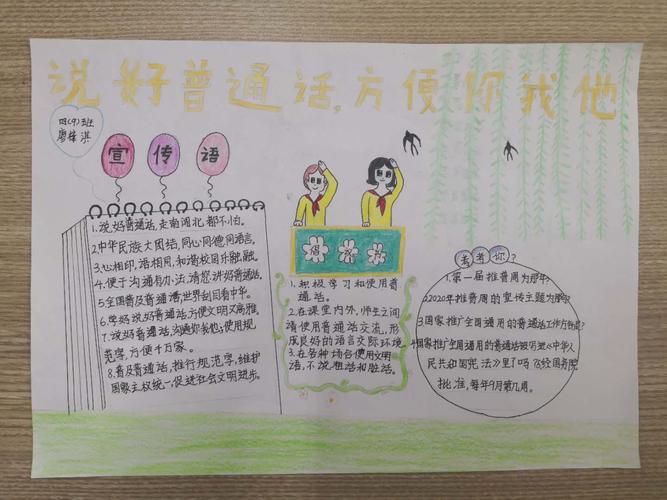 说好普通话,方便你我他
四(9)班
宣传语
1.说好普通话,走南闯北,都不怕。
2.中华民族大团结,同心同德同语言。
3.心相印,语相用,和谐校园永融融。
4.便于沟通有办法,请您讲好普通话。
5.全国普及普通话,世界刮目看中华。
6.学好说好普通话,方便文明又高雅。
7.说好普通话,沟通你我他;使用规
范字,方便千万家。
8.普及普通话,推行规范字,维护
国家主权统一,促进社会文明进步。
倡议书
1.积极学习和使用普
通话。
2.在课堂内外,师生之间
请使用普通话交流,形
成良好的语言交际环境
3.在各种场合使用文明
语,不说粗话和脏话。
考考你?
1.第一届推普周为哪年?
2.2020年推普周的宣传主题为
3.国家推广全国通用的普通话工作方针
4.国家推广全国通用的普通话被写进《中华人
民共和国宪法》里了吗?
5.经国务院
批准,每年9月第几周。